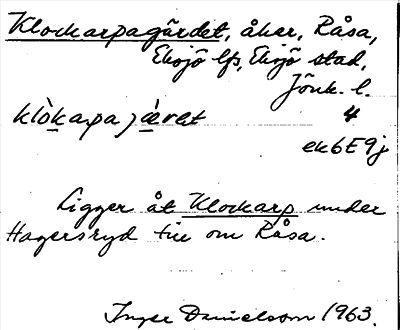 Klockarpagärdet, åker, Råsa,
Eksjö lfs, Eksjö stad,
Jönk. l.
klòkarpajǽret 4
ek6E9j
Ligger åt Klockarp under
Hagersryd till om Råsa.
Inger Danielsson 1963.